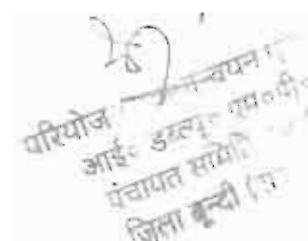 परियोज
आई० डब्ल्यू० एम० पी०
पंचायत समिति
जिला बून्दी